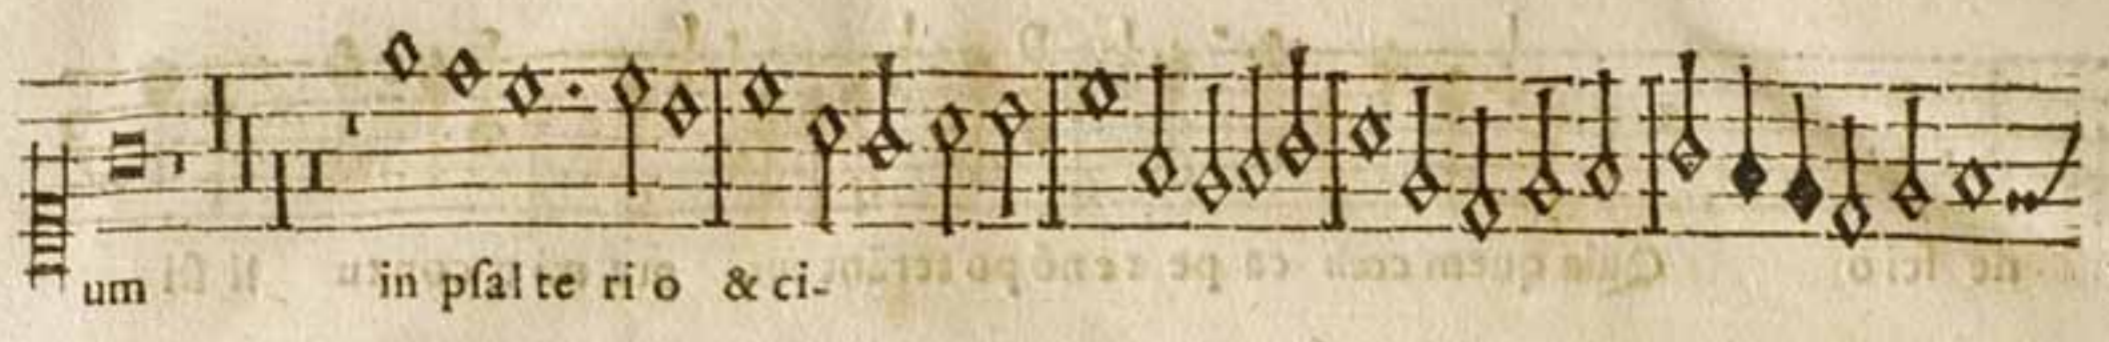 um in pſal te ri o & ci-